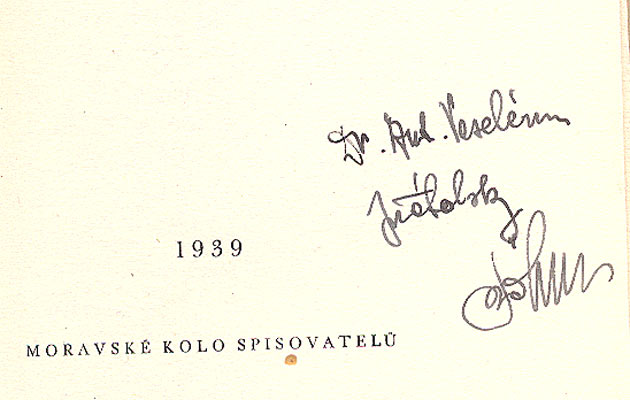 Dr. Ant. Veselému
přátelsky
1939
MORAVSKÉ KOLO SPISOVATELŮ